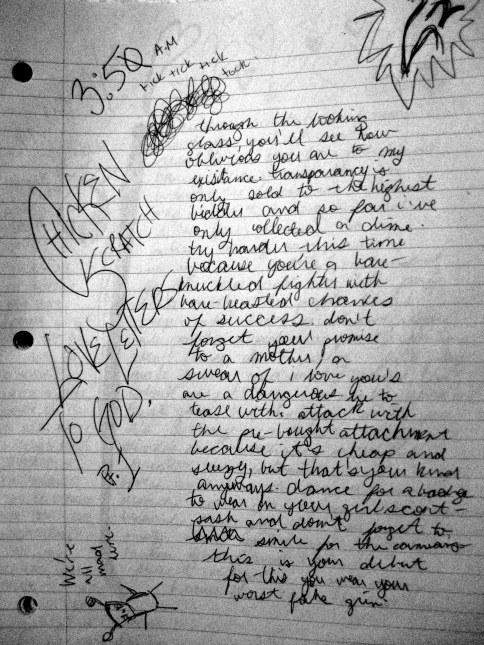 3:50 A.M
tick tick tick
tock.
through the looking
glass, you'll see how
oblivious you are to my
existance. transparancy is
only sold to the highest
bidder and so far i've
only collected a dime.
try harder this time
because you're a bare-
knuckled fighter with
bare-beasted chances
of success. don't
forget your promise
to a mother, or
swear of i love you's
are a dangerous lie to
tease with. attack with
the pre-bought attachment
because it's cheap and
sleezy, but that's your kind
anyways. dance for a badge
to wear on your girlscout-
sash and don't forget to
smile for the cameras
this is your debut
for this you wear your
worst fake grin.
CHICKEN
SCRATCH
LOVE LETTERS
TO GOD.
We're
all
mad
here.